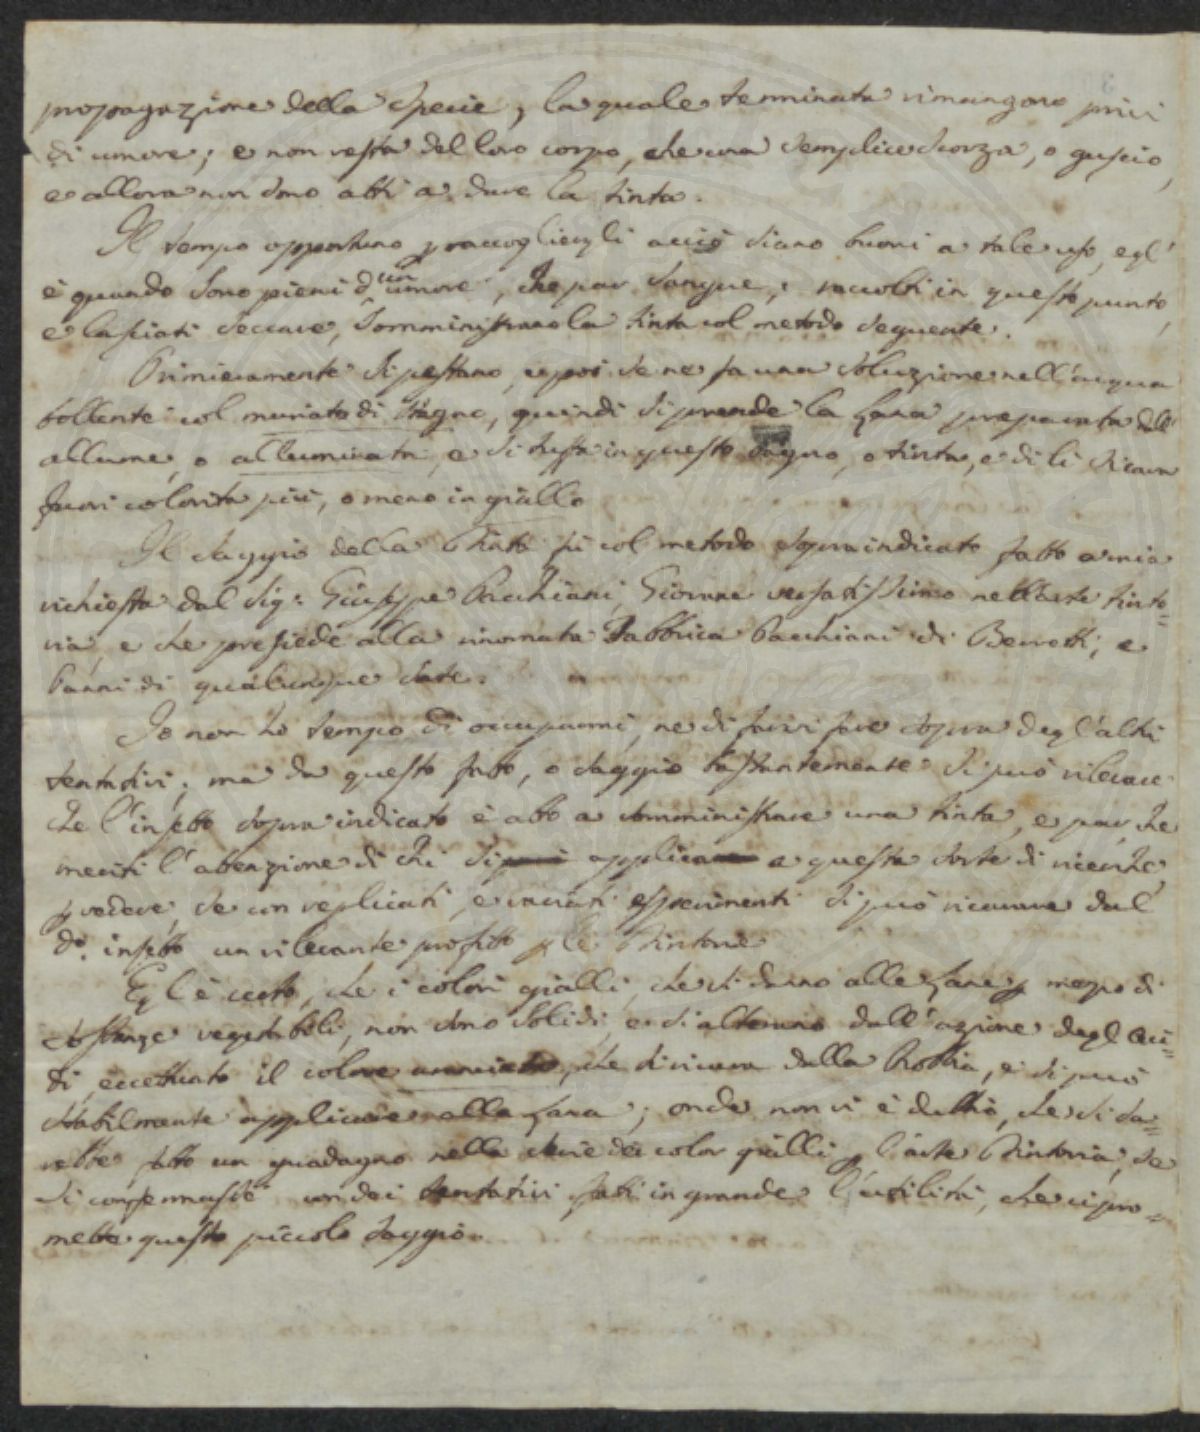 propagazione della Specie, la quale terminata rimangono privi
di umore; e non resta del loro corpo, che una semplice scorza, o guscio,
e allora non sono atti a dare la tinta.
Il tempo opportuno p raccoglierli acciò siano buoni a tale uso, egl'
è quando sono pieni d'un umore, che par sangue; raccolti in questo punto,
e lasciati seccare, somministrano la tinta col metodo seguente.
Primieramente si pestano, e poi se ne fa una soluzione nell'acqua
bollente col muriato di stagno, quindi si prende la Lana preparata dall'
allume, o alluminata, e si tuffa in questo bagno, o tinta, e di lì si cava
fuori colorita più, o meno in giallo
Il saggio della Tinta fù col metodo sopraindicato fatto a mia
richiesta dal Sig: Giuseppe Pacchiani, Giovane versatissimo nell'arte tinto=
ria, e che presiede alla rinomata Fabbrica Pacchiani di Berretti, e
Panni di qualunque sorte.
Io non ho tempo di occuparmi, ne di farvi fare sopra degl'altri
tentativi; ma da questo fatto, o saggio bastantemente si può rilevare
che l'insetto sopraindicato è atto a somministrare una tinta, e par che
meriti l'attenzione di chi si applica a questa sorte di ricerche,
p vedere, se con replicati, e variati esperimenti si può ricavare dal
do. insetto un rilevante profitto p le Tintorie
Egl'è certo, che i colori gialli, che si danno alle Lane p mezzo di
sostanze vegetabili, non sono solidi, e si alterano dall'azione degl'Aci=
di, eccettuato il colore aranciato, che si ricava dalla Robbia, e si può
stabilmente applicare alla Lana; onde non vi è dubbio, che si sa=
rebbe fatto un guadagno nella serie dei color gialli p l'arte Tintoria, se
si confermasse con dei tentativi fatti in grande l'utilità, che ci pro=
mette questo piccolo saggio.